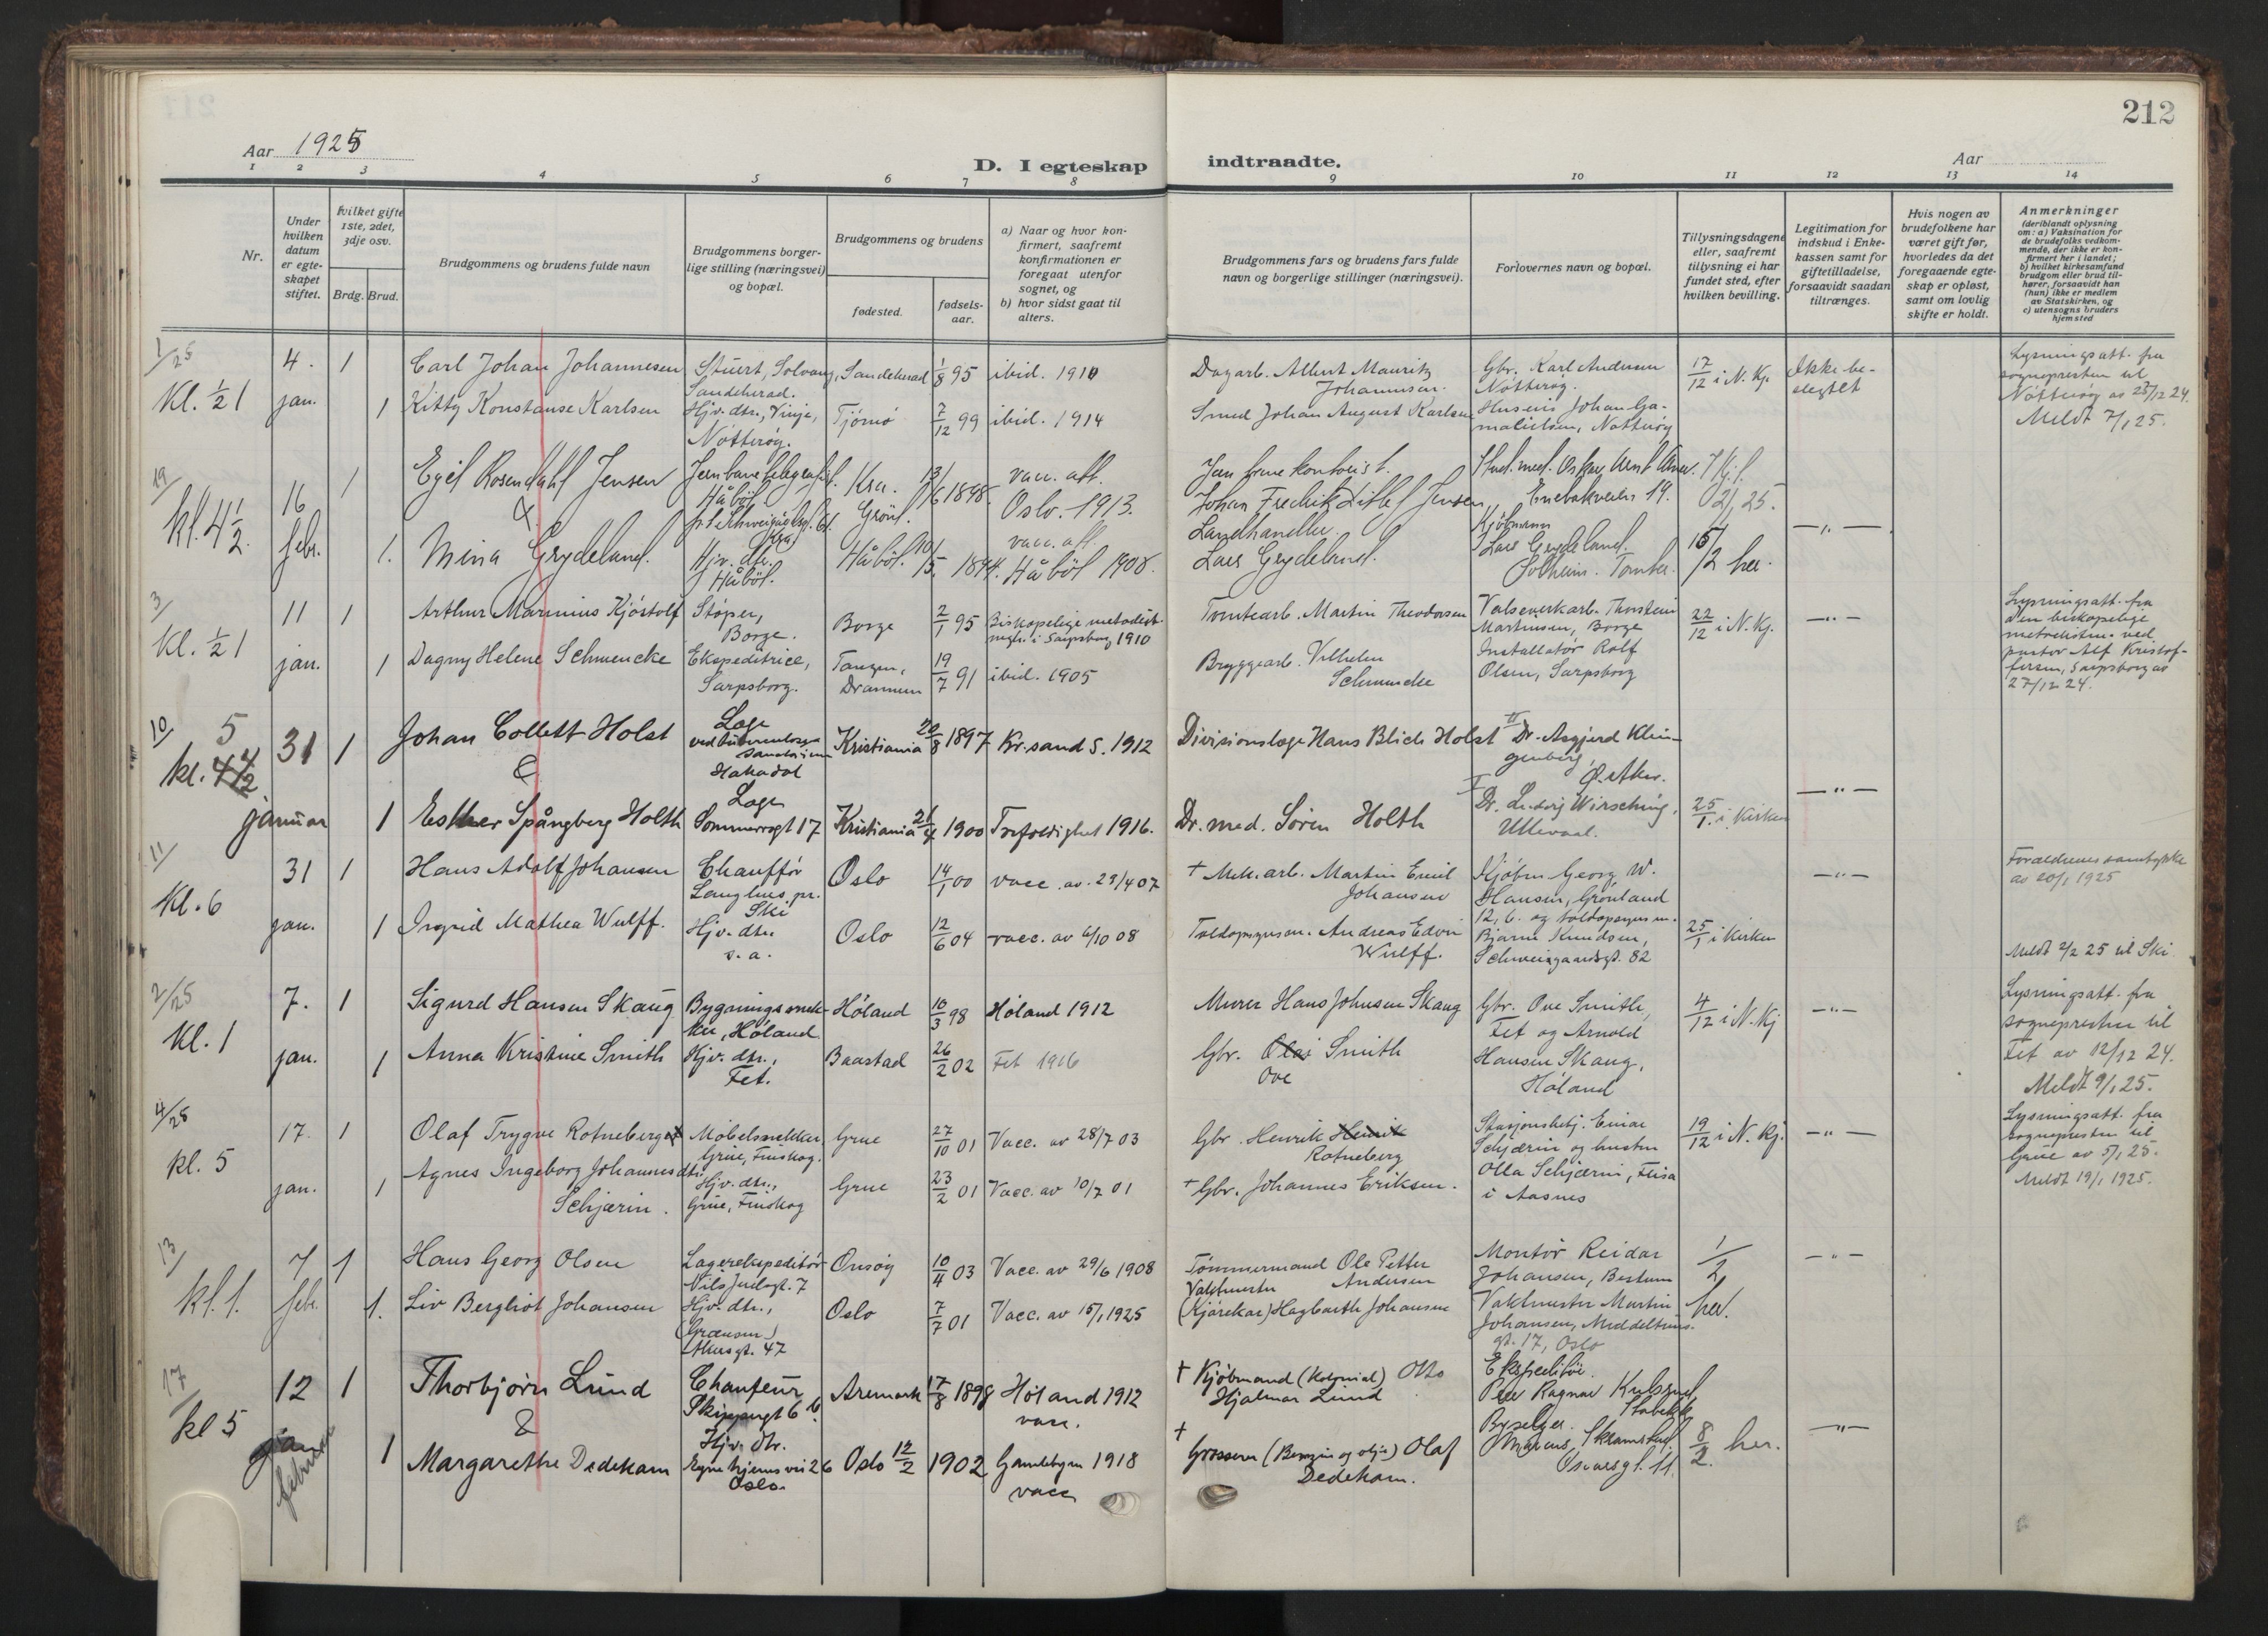 212
Aar 1925
Aar
D. I egteskap indtraadte.
1 2 3 4 5 6 7 8 9 10 11 12 13 14
Nr.
Under hvilken datum er egte-skapet stiftet.
hvilket gifte 1ste, 2det, 3dje osv.
Brdg. Brud.
Brudgommens og brudens fulde navn
Brudgommens borger-
lige stilling (næringsvei)
og bopæl.
Brudgommens og brudens
fødested.
fødsels-
aar.
a) Naar og hvor kon-
firmert, saafremt
konfirmationen er
foregaat utenfor
sognet, og
b) hvor sidst gaat til
alters.
Brudgommens fars og brudens fars fulde
navn og borgerlige stillinger (næringsvei).
Forlovernes navn og bopæl.
Tillysningsdagene
eller, saafremt
tillysning ei har
fundet sted, efter
hvilken bevilling.
Legitimation for
indskud i Enke-
kassen samt for
giftetilladelse,
forsaavidt saadan
tiltrænges.
Hvis nogen av
brudefolkene har
været gift før,
hvorledes da det
foregaaende egte-
skap er opløst,
samt om lovlig
skifte er holdt.
Anmerkninger
(deriblandt oplysning
om: a) Vaksination for
de brudefolks vedkom-
mende, der ikke er kon-
firmert her i landet;
b) hvilket kirkesamfund
brudgom eller brud til-
hører, forsaavidt han
(hun) ikke er medlem
av Statskirken, og
c) utensogns bruders
hjemsted
1/25 Kl. ½ 1
4. jan. 1
Carl Johan Johannesen
Stuert, Solvang, Sandeherad.
Sandeherad 1/8 95 ibid. 1910
Dagarb. Albert Mauritz Johannsen.
Gbr. Karl Andersen Nøtterøy.
17/12 i N. Kj.
Ikke be-
Lysningsatt. fra
sognepresten til
Nøtterøy av 27/12 24.
Meldt 7/1 25.
1 Kitty Konstanse Karlsen
Hjv. dtr., Vinje, Nøtterøy.
Tjømø 7/12 99 ibid. 1914
Smed Johan August Karlsen
Huseier Johan Ga-
malielsen, Nøtterøy
19 kl. 4½.
16 febr. 1
Egil Rosendahl Jensen
&
Jernbanetelegrafist.
Håbøl
Kra. Grønl. 13/6 1898.
vacc. att.
Oslo. 1913.
Jernbanekontorist.
Johan Fredrik Ditlef Jensen
Stud. med. Oskar
Enebakveien 19.
1. Mina Grydeland.
Hjv. dtr.
Håbøl.
Håbøl. 10/5. 1894.
vacc. att.
Håbøl 1908.
Landhandler.
Lars Grydeland.
Kjøbmann
Lars Grydeland.
Solheim. Tomter.
15/2 her.
— „ —
3/ kl. ½ 1
11 jan. 1
Arthur Marinius Kjøstolf
Støper,
Borge.
Borge 2/1 95
Biskopelige metodist-
mgh. i Sarpsborg 1910
Tomtearb. Martin Theodorsen
Valseverkarb. Thorstein
Martinsen, Borge
22/12 i N. Kj.
— „ —
Lysningsatt. fra
den biskopelige
metodistm. ved
pastor Alf Kristof-
fersen, Sarpsborg av
27/12 24.
1 Dagny Helene Schwencke
Ekspeditrice,
Sarpsborg.
Tangen,
Drammen 19/7 91 ibid. 1905
Bryggearb. Vilhelm
Schwencke
Installatør Rolf
Olsen, Sarpsborg
10/ 5 kl. 4½
31 januar 1
Johan Collett Holst
&
Læge
ved tuberculose
sanatorium
Hakadal
Kristiania 20/8 1897 Kr.sand S. 1912
Divisionslæge Hans Blich Holst
II Dr. Asgjerd Klin-
genberg,
Ø. Aker.
1 Esther Spångberg Holth
Læge
Sommerrogt 17
Kristiania 21/4 1900 Trefoldighet 1916.
Dr. med. Søren Holth
I Dr. Ludvig Wirsching,
Ullevaal.
25/1. i Kirken
— „ —
11/ Kl. 6
31 jan. 1
Hans Adolf Johansen
Chauffør
Langhus pr.
Ski
Oslo 14/1 00 vacc. av. 29/4 07
† Mek. arb. Martin Emil
Johansen
Kjøbm Georg W.
Hansen, Grønland
12, b. og toldopsynsm.
— „ —
Forældrenes samtykke
av 20/1 1925
1 Ingrid Mathea Wulff.
Hjv. dtr.
s. a.
Oslo 12/6 04 vacc. av 6/10 08
Toldopsynsm. Andreas Edvin
Wulff.
Bjarne Knudsen,
Schweigaardsgt. 82
25/1 i Kirken
Meldt 2/2 25 til Ski
2/25 Kl. 1
7. jan. 1
Sigurd Hansen Skaug
Bygningssnek-
ker, Høland
Høland 10/3 98 Høland 1912
Murer Hans Johnsen Skaug
Gbr. Ove Smith,
Fet og Arnold
Hansen Skaug,
Høland
4/12 i N. Kj
— „ —
Lysningsatt. fra
sognepresten til
Fet av 12/12 24.
Meldt 9/1 25.
1 Anna Kristine Smith
Hjv. dtr.,
Fet.
Baastad 26/2 02 Fet 1916
Gbr. Olai Smith
Ove
4/25 kl. 5
17. jan. 1
Olaf Trygve Rotneberget
Møbelsnekker,
Grue, Finskog.
Grue 27/10 01 Vacc. av 28/7 03
Gbr. Henrik Henrik
Rotneberg
Stasjonsbetj. Einar
Schjærin og hustru
Olla Schjærin, Flisa
i Aasnes
19/12 i N. Kj.
— „ —
Lysningsatt. fra
sognepresten til
Grue av 5/1 25.
Meldt 19/1 1925.
1 Agnes Ingeborg Johannesdtr.
Schjærin.
Hjv. dtr.,
Grue, Finskog
Grue 23/2 01 Vacc. av 10/7 01
† Gbr. Johannes Eriksen.
13/ kl. 1.
7 febr. 1
Hans Georg Olsen
Lagerekspeditør
Nils Juelsgt. 7
Onsøy 10/4 03 Vacc. av 29/6 1908
Tømmermand Ole Petter
Andersen
Montør Reidar
Johansen, Bestum
1/2 her.
— „ —
1. Liv Bergliot Johansen
Hjv. dtr.,
(Grænsen)
Akersgt. 47
Oslo 7/7 01 Vacc. av 15/1 1925
Vaktmester
(Kjørekar) Hagbarth Johansen
Vaktmester Martin
Johansen, Middelthuns-
gt. 17, Oslo
17/ kl 5
12 jan februar 1
Thorbjørn Lund
&
Chauffeur
Skippergt 6 b.
Aremark 17/8 1898 Høland 1912
vacc.
† Kjøbmand (kolonial) Otto
Hjalmar Lund
Ekspeditør.
Per Ragnar
Stabekk
1 Margarethe Dedekam
Hjv. dtr.
Egne hjems vei 26
Oslo.
Oslo 12/2 1902 Gamlebyen 1918
vacc
† Grosserer (Benzin og olje) Olaf
Dedekam.
Marcus Skramstad.
Oscarsgt. 11.
8/2. her.
— „ —